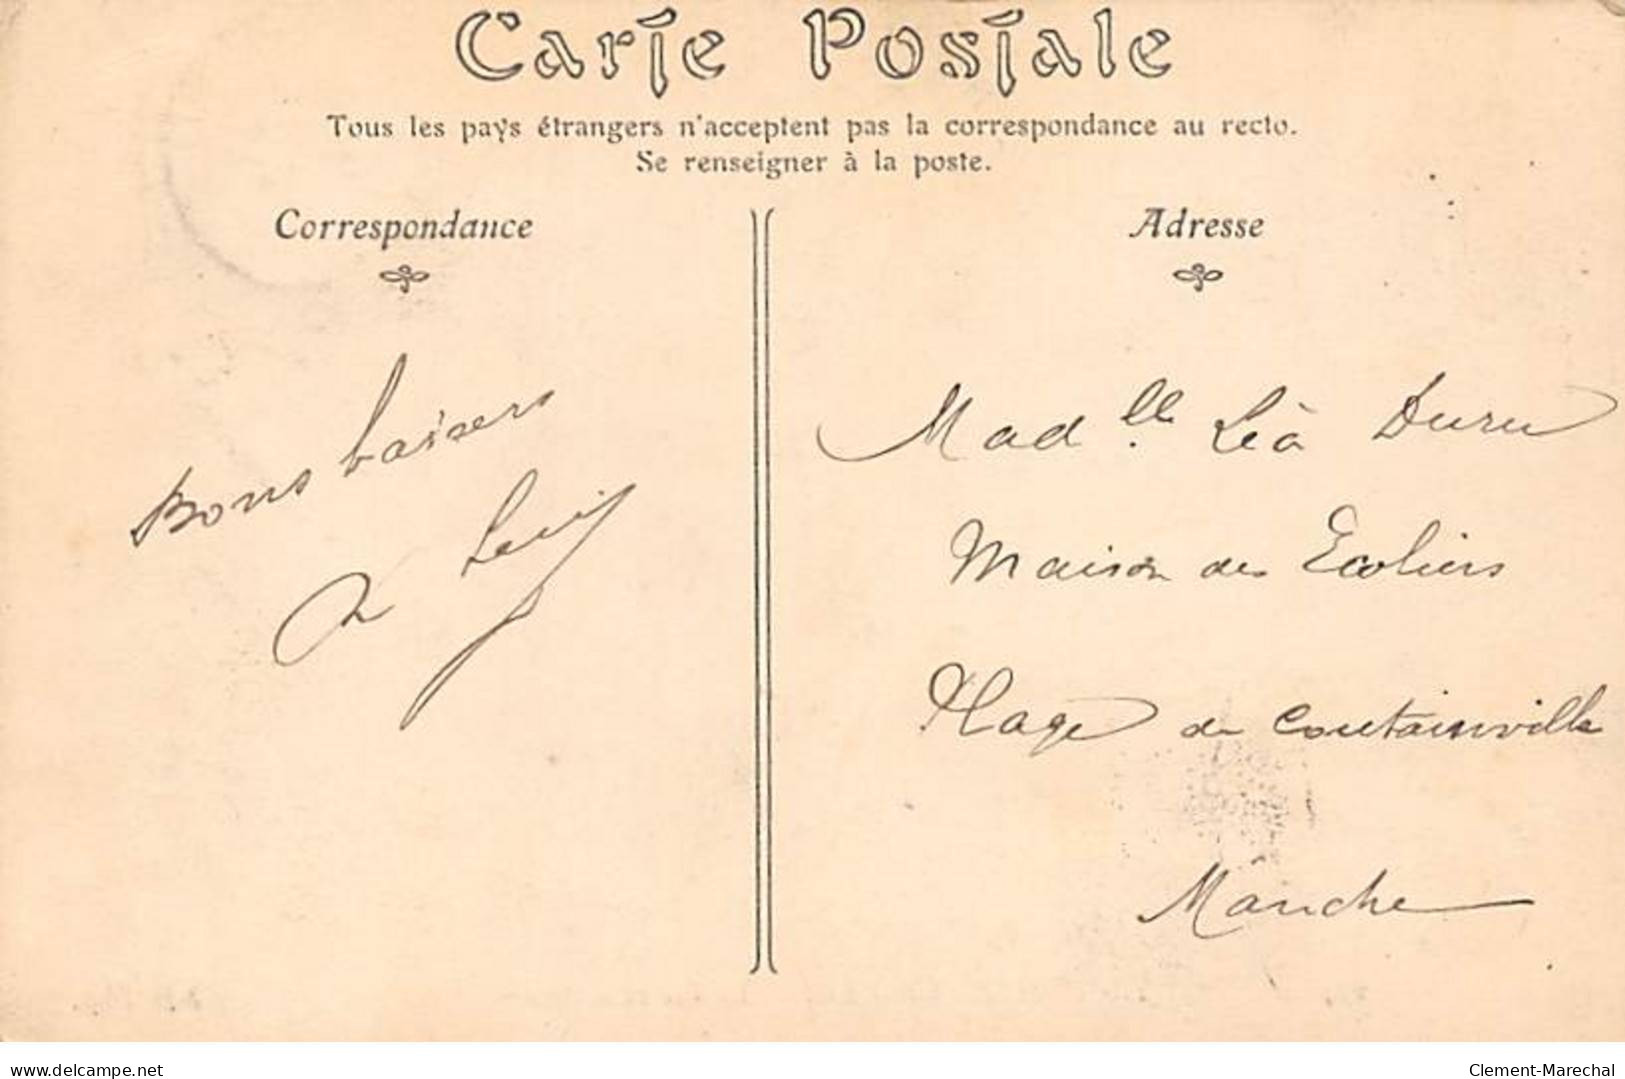 Carte Postale
Tous les pays étrangers n'acceptent pas la correspondance au recto.
Se renseigner à la poste.
Correspondance
Bons baisers
Adresse
Mad.lle Léà Duru
Maison des Ecoliers
Plage de Coutainville
Manche
www.delcampe.net
Clement-Marechal